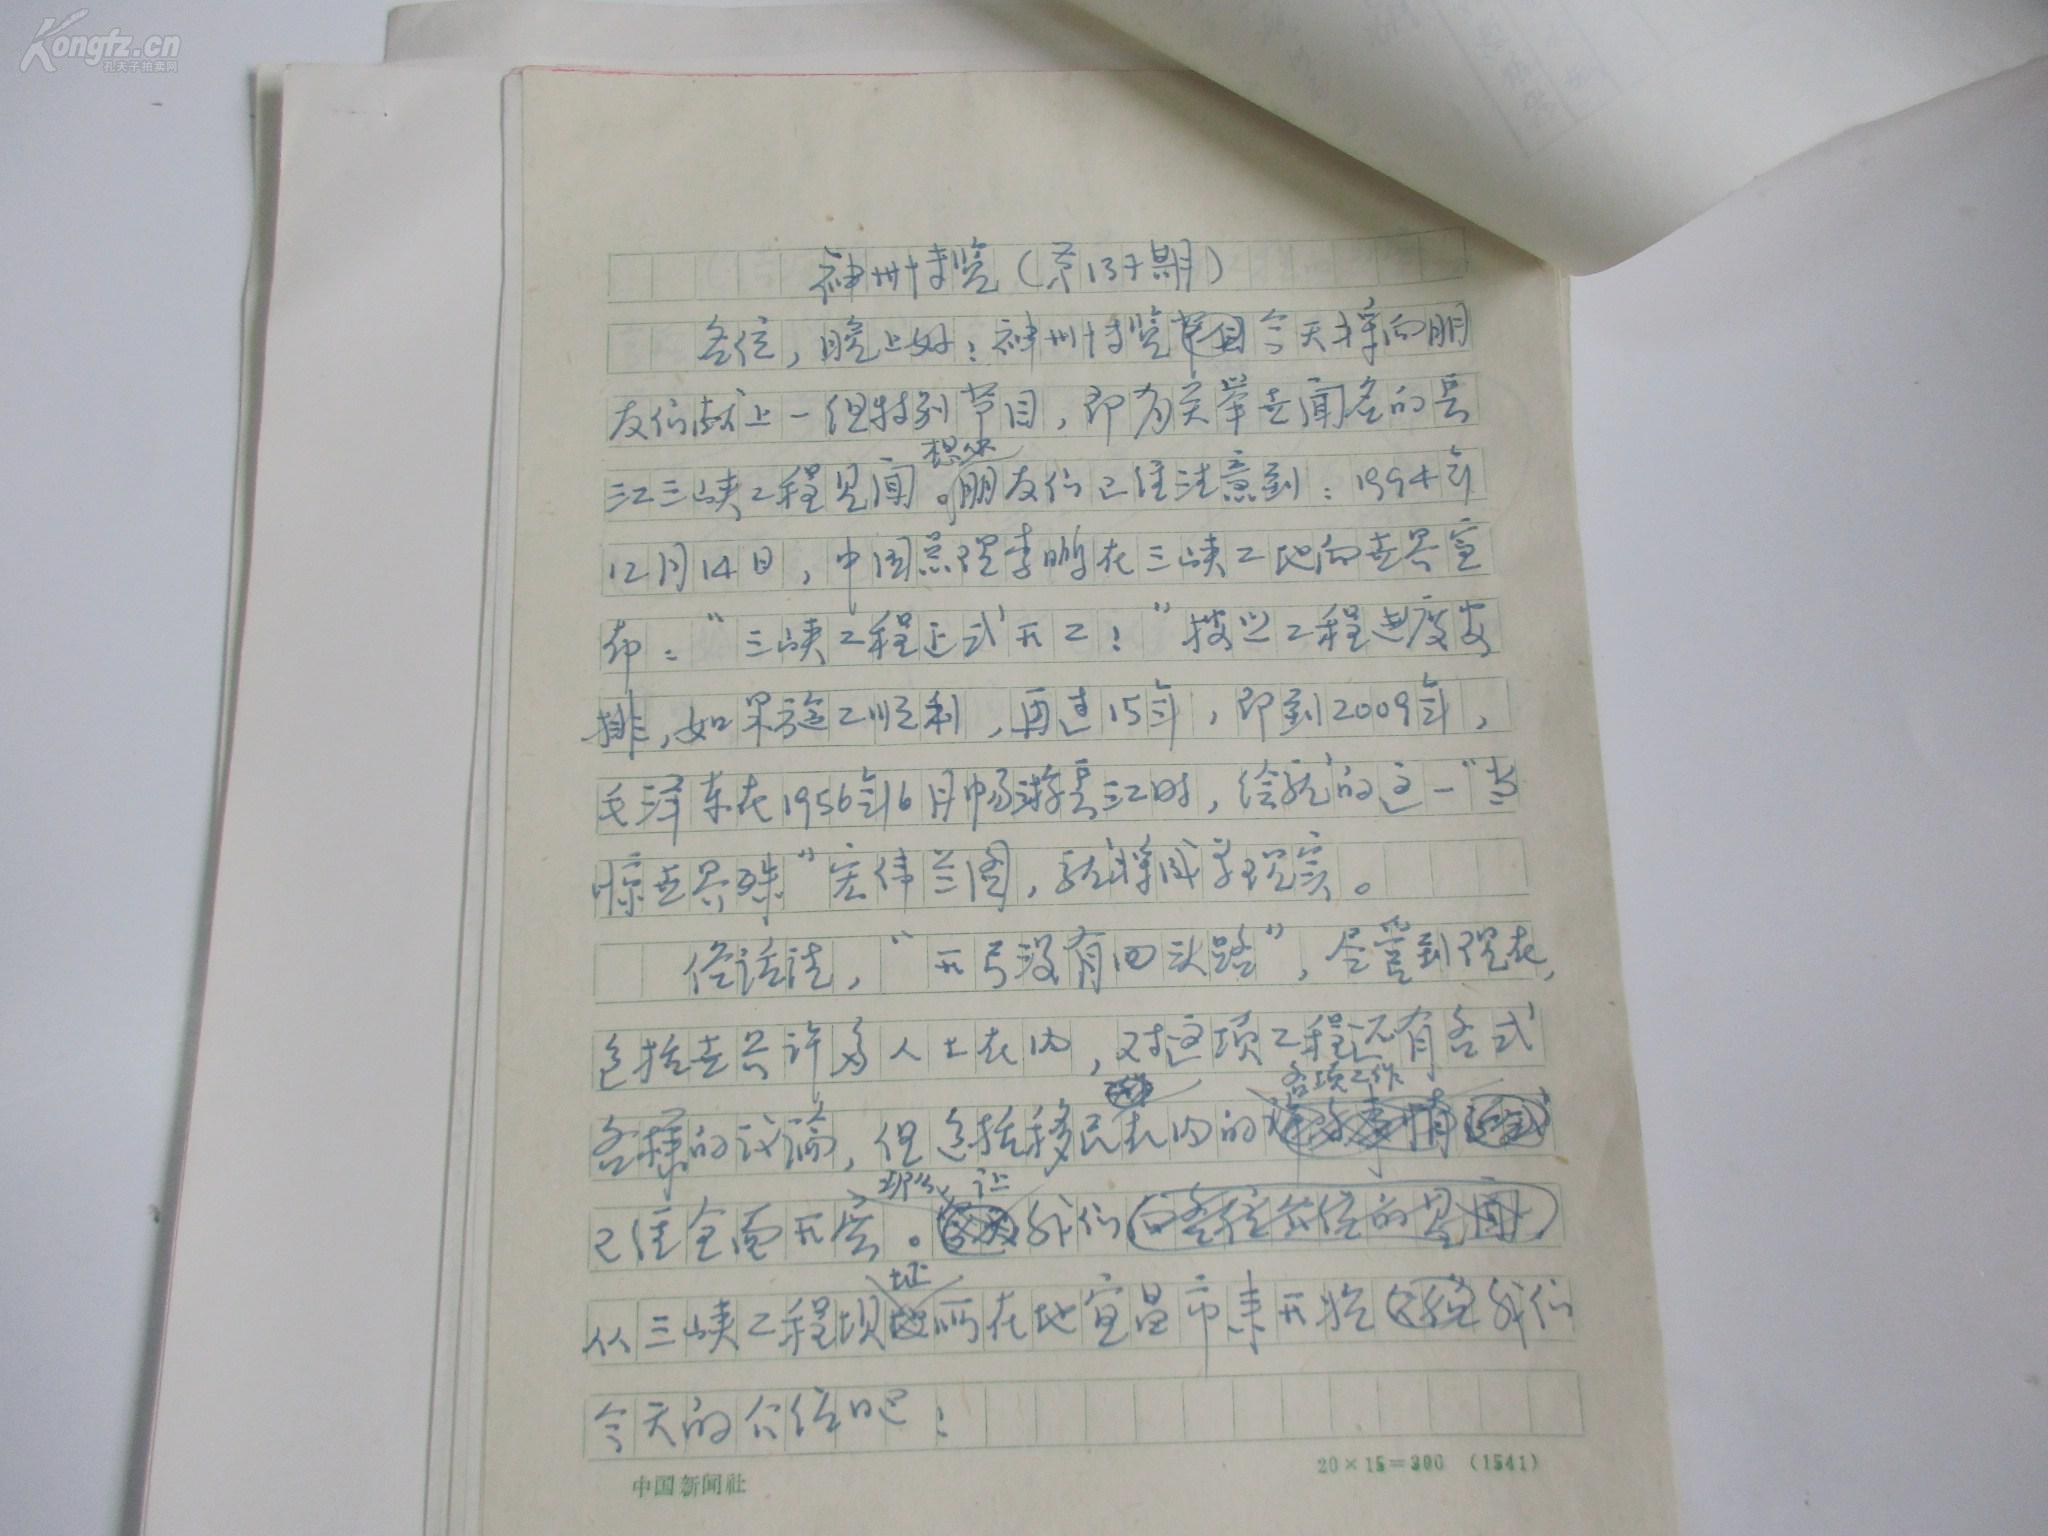 Kongfz.cn
孔夫子拍卖网
神州博览（第137期）
各位，晚上好：神州博览节目今天将向朋
友们献上一组特别节目，即有关举世闻名的长
江三峡工程见闻。想必朋友们已经注意到：1994年
12月14日，中国总理李鹏在三峡工地向世界宣
布：“三峡工程正式开工！”按照工程进度安
排，如果施工顺利，再过15年，即到2009年，
毛泽东在1956年6月畅游长江时，绘就的这一“当
惊世界殊”宏伟兰图，就将成为现实。
俗话说，“开弓没有回头路”，尽管到现在，
包括世界许多人士在内，对这项工程还有各式
各样的议论，但包括移民在内的各项工作
已经全面开展。现在，让我们
从三峡工程坝址所在地宜昌市来开始我们
今天的介绍吧！
中国新闻社
20×15=300 (1541)